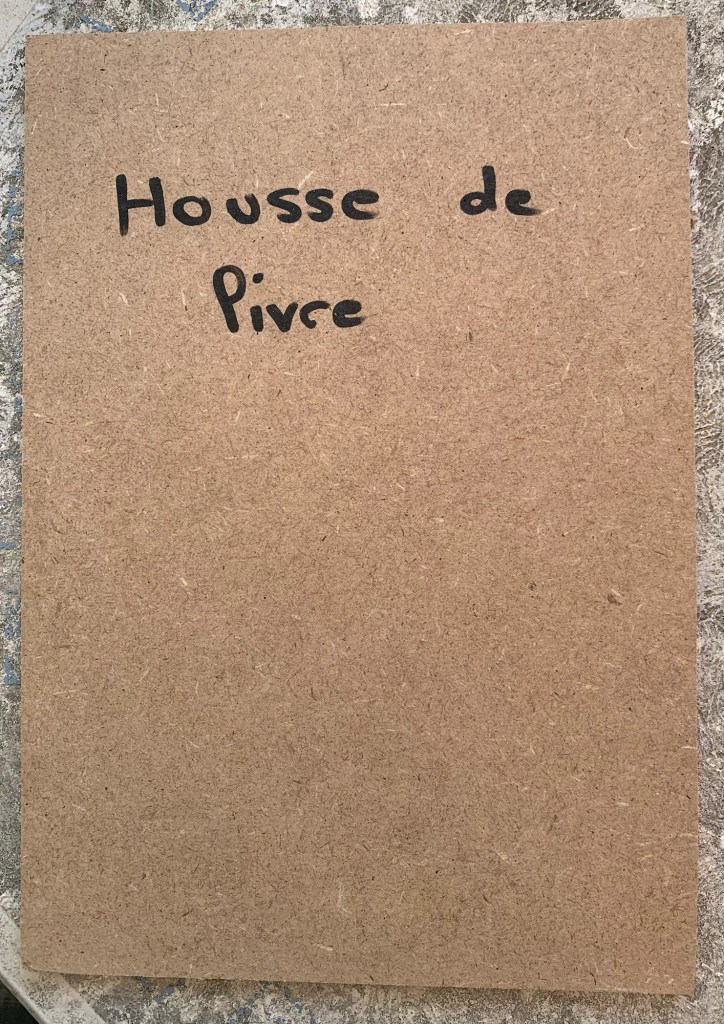 Housse de
Pivre